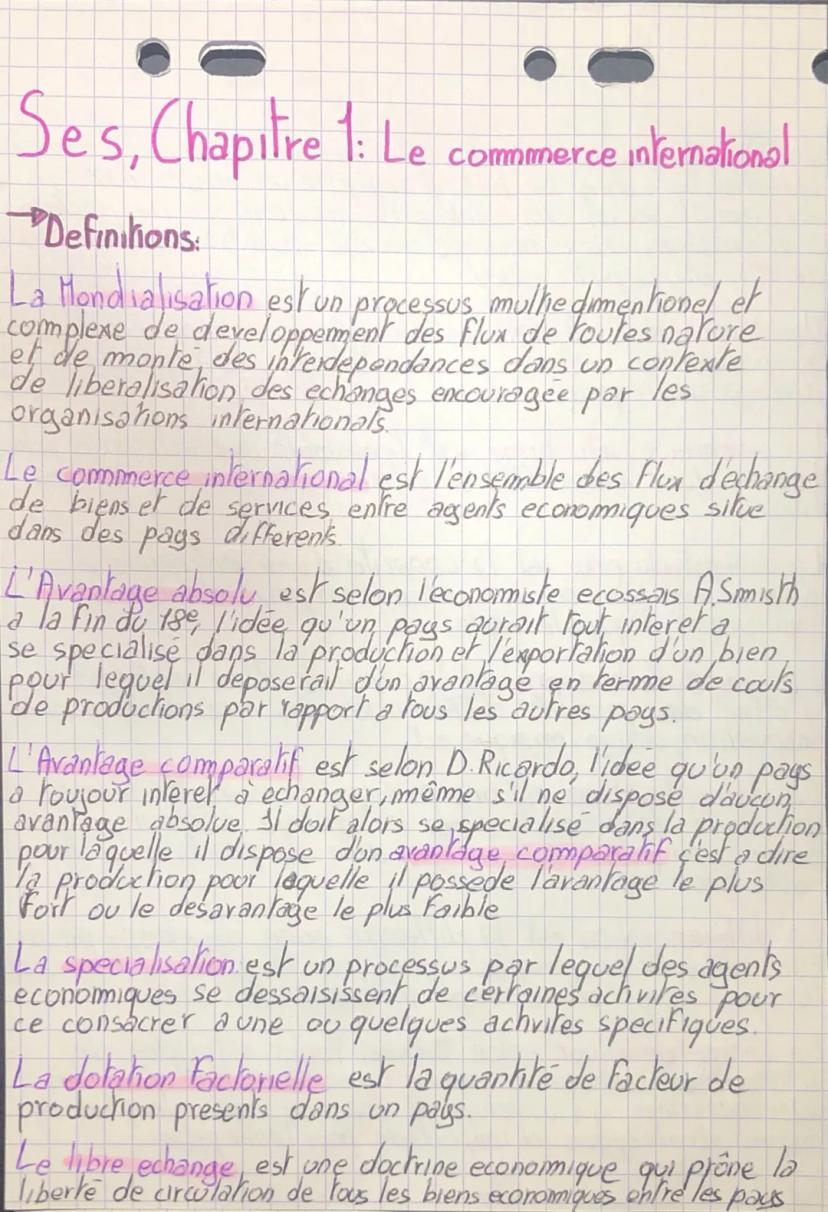 Ses, Chapitre 1: Le commmerce international
→Definitions:
La Mondialisation est un processus multhedimentionel et
complexe de developpement des flux de toutes nature
et de monté des interdependances dans un contexte
de liberalisation des echanges encouragée par les
organisations internationals.
Le commmerce international est l'ensemble des flux d'echange
de biens et de services entre agents economiques situe
dans des pays differents.
L'Avantage absolu est selon l'economiste ecossais A.Smisth
a la fin du 18e, l'idée qu'un pays aurait tout interet a
se specialisé dans la production et l'exportation d'un bien
pour lequel il deposerait d'un avantage en terme de couts
de productions par rapport a tous les autres pays.
L'Avantage comparatif est selon D.Ricardo, l'idée qu'un pays
a toujour interet à echanger, même s'il ne dispose d'aucun
avantage absolue. Il doit alors se specialisé dans la production
pour laquelle il dispose d'un avantage comparatif c'est a dire
la production pour laquelle il possede l'avantage le plus
fort ou le desavantage le plus faible
La specialisation est un processus par lequel des agents
economiques se dessaisissent de certaines activites pour
ce consacrer a une ou quelques activites specifiques.
La dotation factorielle est la quantité de facteur de
production presents dans un pays.
Le libre echange est une doctrine economique qui prône la
liberté de circulation de tous les biens economiques entre les pays